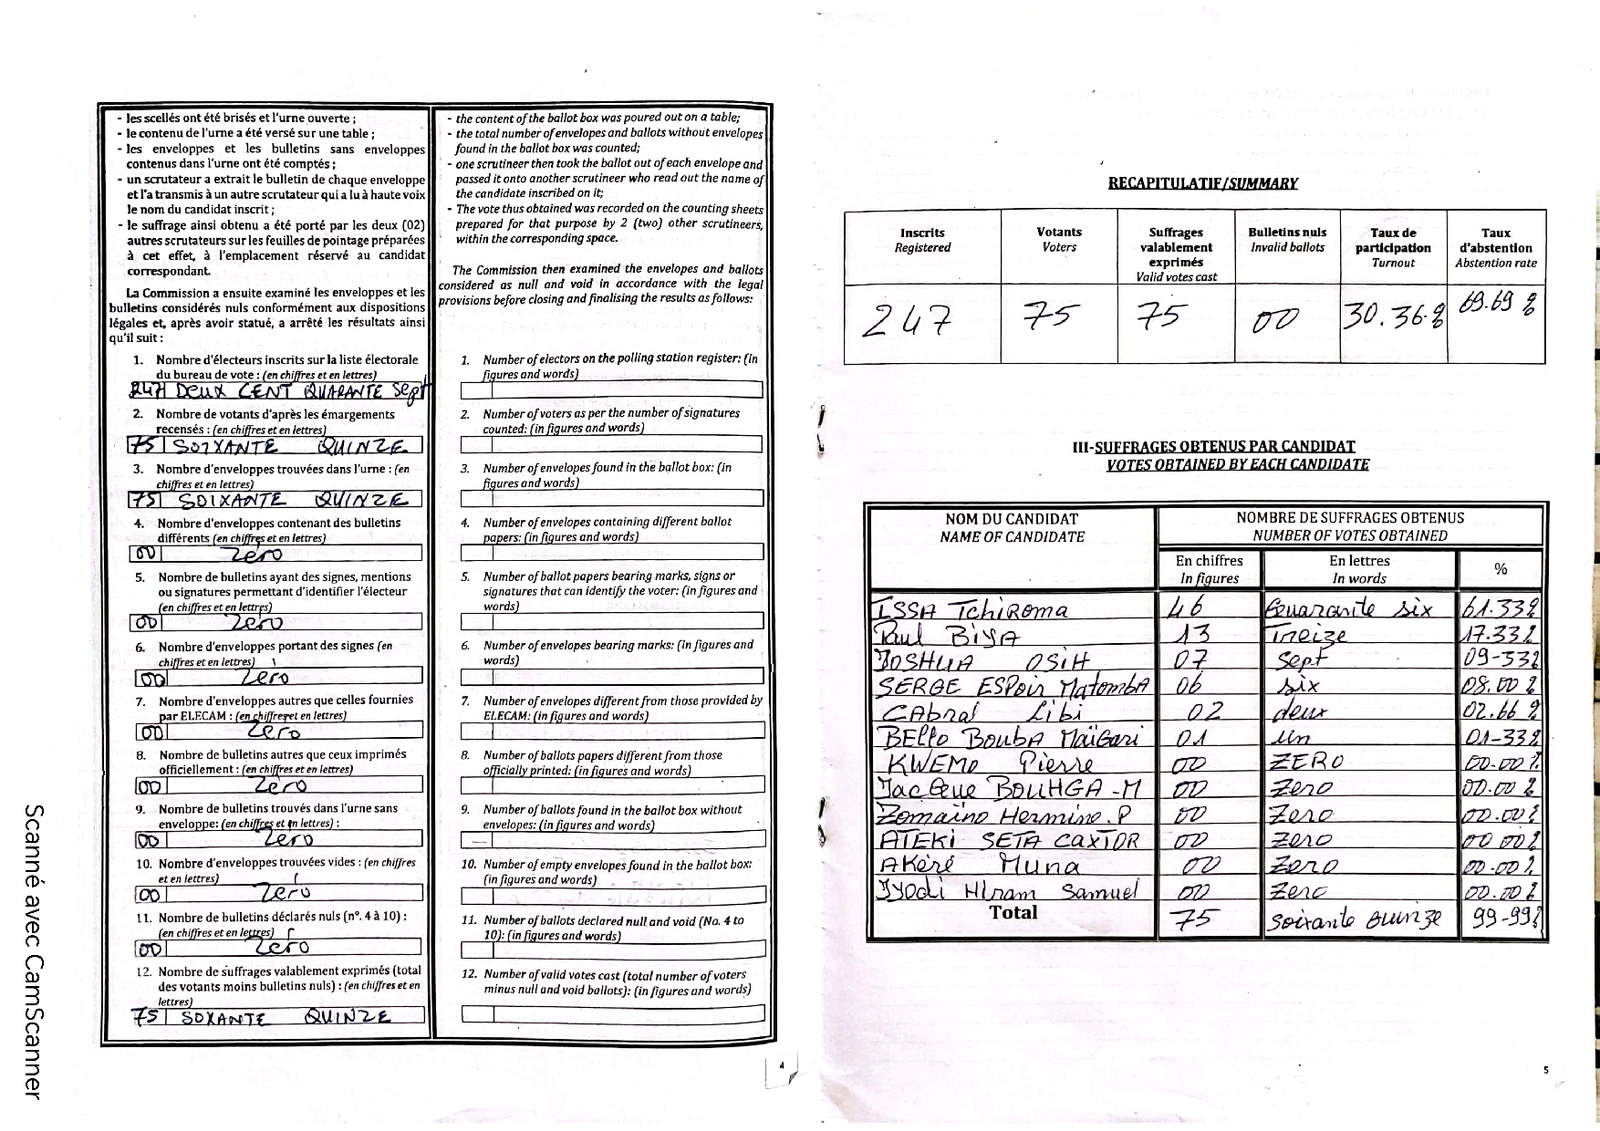 - les scellés ont été brisés et l'urne ouverte ;
- le contenu de l'urne a été versé sur une table ;
- les enveloppes et les bulletins sans enveloppes
contenus dans l'urne ont été comptés ;
- un scrutateur a extrait le bulletin de chaque enveloppe
et l'a transmis à un autre scrutateur qui a lu à haute voix
le nom du candidat inscrit ;
- le suffrage ainsi obtenu a été porté par les deux (02)
autres scrutateurs sur les feuilles de pointage préparées
à cet effet, à l'emplacement réservé au candidat
correspondant.
La Commission a ensuite examiné les enveloppes et les
bulletins considérés nuls conformément aux dispositions
légales et, après avoir statué, a arrêté les résultats ainsi
qu'il suit :
1. Nombre d'électeurs inscrits sur la liste électorale
du bureau de vote : (en chiffres et en lettres)
247 DEUX CENT QUARANTE Sept
2. Nombre de votants d'après les émargements
recensés : (en chiffres et en lettres)
75 SOIXANTE QUINZE
3. Nombre d'enveloppes trouvées dans l'urne : (en
chiffres et en lettres)
75 SOIXANTE QUINZE
4. Nombre d'enveloppes contenant des bulletins
différents (en chiffres et en lettres)
00 Zero
5. Nombre de bulletins ayant des signes, mentions
ou signatures permettant d'identifier l'électeur
(en chiffres et en lettres)
00 Zero
6. Nombre d'enveloppes portant des signes (en
chiffres et en lettres)
00 Zero
7. Nombre d'enveloppes autres que celles fournies
par ELECAM : (en chiffres et en lettres)
00 Zero
8. Nombre de bulletins autres que ceux imprimés
officiellement : (en chiffres et en lettres)
00 Zero
9. Nombre de bulletins trouvés dans l'urne sans
enveloppe: (en chiffres et en lettres) :
00 Zero
10. Nombre d'enveloppes trouvées vides : (en chiffres
et en lettres)
00 Zero
11. Nombre de bulletins déclarés nuls (n°. 4 à 10) :
(en chiffres et en lettres)
00 Zero
12. Nombre de suffrages valablement exprimés (total
des votants moins bulletins nuls) : (en chiffres et en
lettres)
75 SOXANTE QUINZE
- the content of the ballot box was poured out on a table;
- the total number of envelopes and ballots without envelopes
found in the ballot box was counted;
- one scrutineer then took the ballot out of each envelope and
passed it onto another scrutineer who read out the name of
the candidate inscribed on it;
- The vote thus obtained was recorded on the counting sheets
prepared for that purpose by 2 (two) other scrutineers,
within the corresponding space.
The Commission then examined the envelopes and ballots
considered as null and void in accordance with the legal
provisions before closing and finalising the results as follows:
1. Number of electors on the polling station register: (in
figures and words)
2. Number of voters as per the number of signatures
counted: (in figures and words)
3. Number of envelopes found in the ballot box: (in
figures and words)
4. Number of envelopes containing different ballot
papers: (in figures and words)
5. Number of ballot papers bearing marks, signs or
signatures that can identify the voter: (in figures and
words)
6. Number of envelopes bearing marks: (in figures and
words)
7. Number of envelopes different from those provided by
ELECAM: (in figures and words)
8. Number of ballots papers different from those
officially printed: (in figures and words)
9. Number of ballots found in the ballot box without
envelopes: (in figures and words)
10. Number of empty envelopes found in the ballot box:
(in figures and words)
11. Number of ballots declared null and void (No. 4 to
10): (in figures and words)
12. Number of valid votes cast (total number of voters
minus null and void ballots): (in figures and words)
4
Scanné avec CamScanner
RECAPITULATIF/SUMMARY
Inscrits Registered
Votants Voters
Suffrages valablement exprimés Valid votes cast
Bulletins nuls Invalid ballots
Taux de participation Turnout
Taux d'abstention Abstention rate
247 75 75 00 30.36% 69.69 %
III-SUFFRAGES OBTENUS PAR CANDIDAT
VOTES OBTAINED BY EACH CANDIDATE
NOM DU CANDIDAT
NAME OF CANDIDATE
NOMBRE DE SUFFRAGES OBTENUS
NUMBER OF VOTES OBTAINED
En chiffres In figures
En lettres In words
%
ISSA Tchiroma 46 Quarante six 61.33%
Paul BIYA 13 Treize 17.33%
JOSHUA OSIH 07 Sept 09-33%
SERGE ESPoir MatombA 06 six 08.00 %
CAbral Libi 02 deux 02.66 %
BEllo BoubA Maïgari 01 un 01-33%
KWEMO Pierre 00 ZERO 00.00 %
Jacque BOUHGA -M 00 Zero 00.00 %
Zomaïno Hermine.P 00 Zero 00.00%
ATEKI SETA CaxTOR 00 Zero 00 00%
AKéré Muna 00 Zero 00.00%
Iyodi HIram Samuel 00 Zero 00.00%
Total 75 Soixante Quinze 99-99%
5